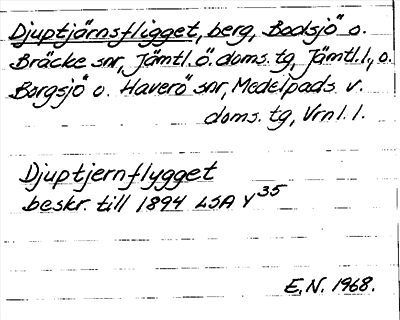 Djuptjärnsfligget, berg, Bodsjö o.
Bräcke snr, Jämtl. ö. doms. tg, Jämtl. l., o.
Borgsjö o. Haverö snr, Medelpads v.
doms. tg, Vrnl. l.
Djuptjernflygget
beskr. till 1894 LSA Y35
E.N. 1968.